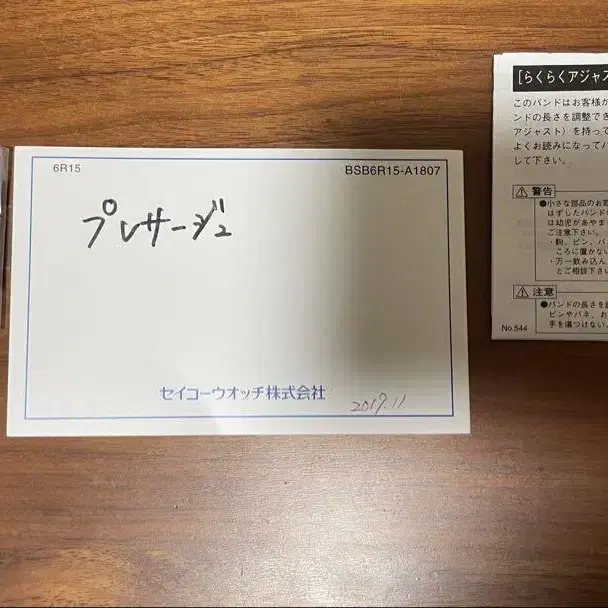 6R15
BSB6R15-A1807
プレサージュ
セイコーウオッチ株式会社
2017.11
[らくらくアジャス
このバンドはお客様が
ンドの長さを調整でき
アジャスト)を持って
よくお読みになってバ
して下さい。
警告
●小さな部品のお取
はずしたバンドの
は幼児があやま
ご注意下さい。
・駒、ピン、バ
ころに置かない
・万一飲み込ん
とご相談下さい
注意
●バンドの長さを
ピンやバネ、お
手を傷つけない
No.544